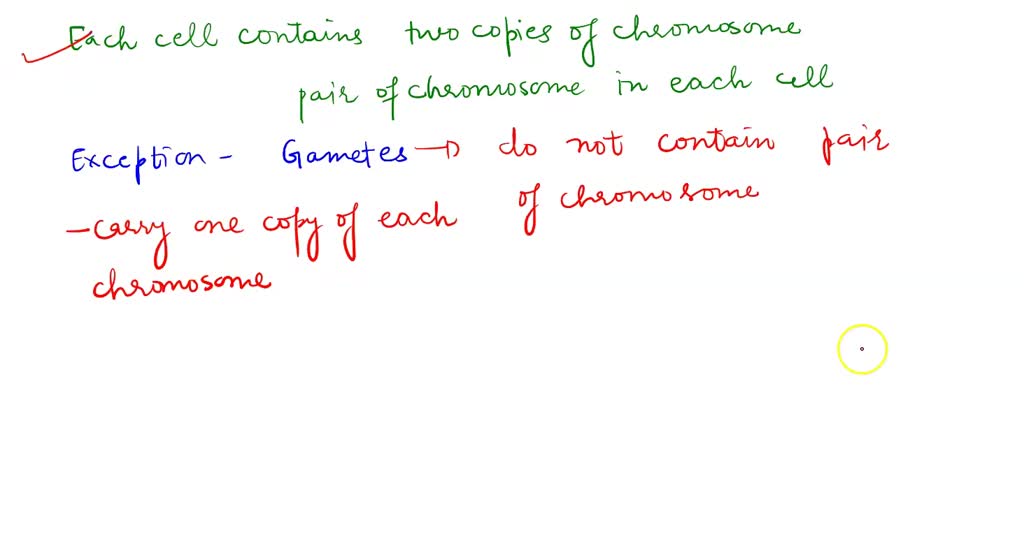 Each cell contains two copies of chromosome
pair of chromosome in each cell
Exception - Gametes → do not contain pair
of chromosome
- carry one copy of each
chromosome